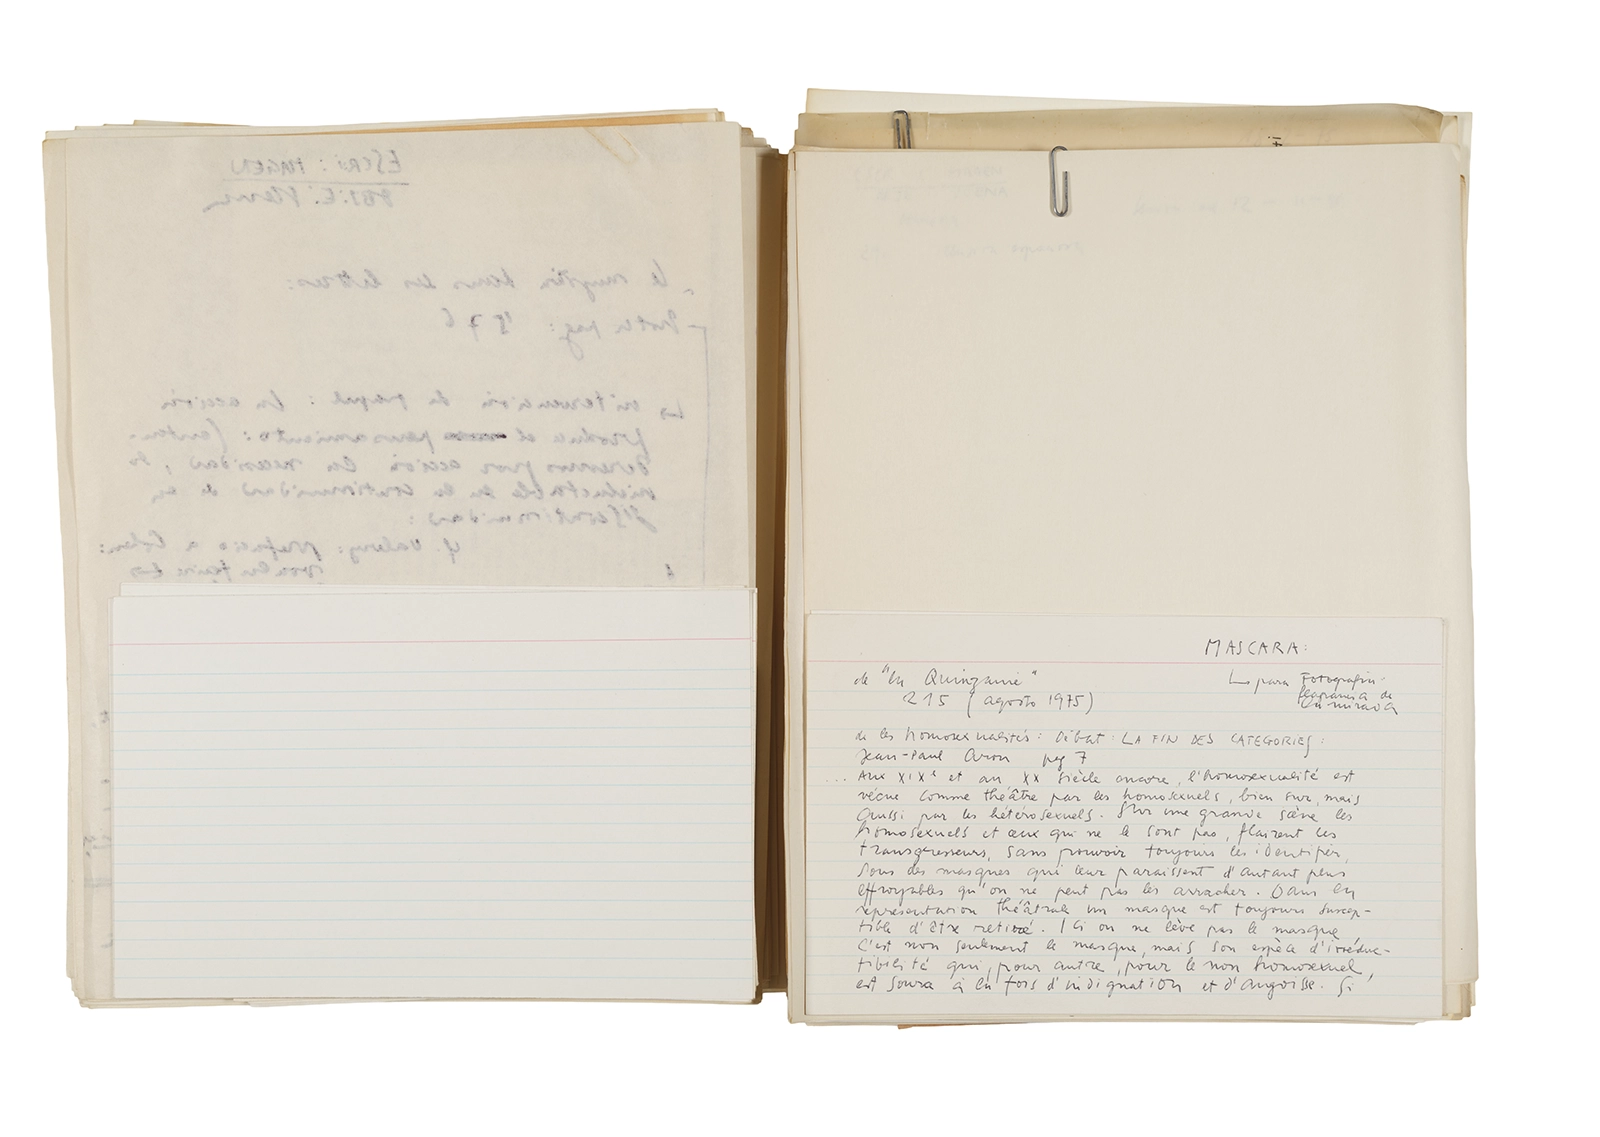 ESCRI: IMAGEN
- Le mystère dans les lettres:
- Notes pag: 1576
↳ intervención de papel: la acción
produce el pensamiento: (enten-
deremos por acción la necesidad, lo
ineluctable en la continuidad de su
discontinuidad:
cf. Valery: prefacio a
MASCARA:
de "la Quinzaine"
↳ para Fotografía:
215 (agosto 1975)
de les homosexualités: Débat: LA FIN DES CATEGORIES:
Jean-Paul Aron pag 7
... Aux XIXe et au XX siècle encore, l'homosexualité est
vécue comme théâtre par les homosexuels, bien sur, mais
aussi par les hétérosexuels. Sur une grande scène les
homosexuels et ceux qui ne le sont pas, flairent les
transgresseurs, sans pouvoir toujours les identifier,
sous des masques qui leur paraissent d'autant plus
effroyables qu'on ne peut pas les arracher. Dans la
représentation théâtrale un masque est toujours suscep-
tible d'être retiré. Ici on ne lève pas le masque,
c'est non seulement le masque, mais son espèce d'irréduc-
tibilité qui, pour autre, pour le non homosexuel,
est source à la fois d'indignation et d'angoisse. Si